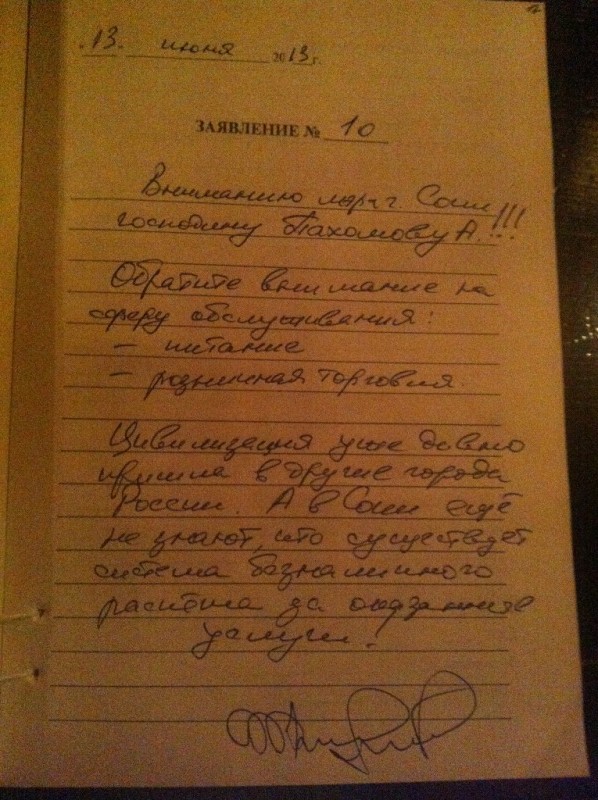 13 июня 2013 г.
ЗАЯВЛЕНИЕ № 10
Вниманию мэра г. Сочи
господину Пахомову А.!!!
Обратите внимание на
сферу обслуживания:
– питание
– розничная торговля.
Цивилизация уже давно
пришла в другие города
России. А в Сочи ещё
не знают, что существует
система безналичного
расчёта за оказанные
услуги!